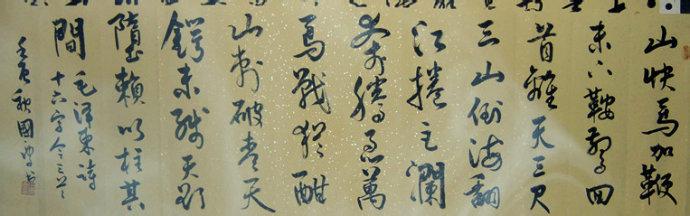 山快馬加鞭
未下鞍驚回
首離天三尺
三山倒海翻
江捲巨瀾
奔騰急萬
馬戰猶酣
山刺破青天
鍔未殘天欲
墮賴以柱其
間 毛澤東詩
十六字令三首
國